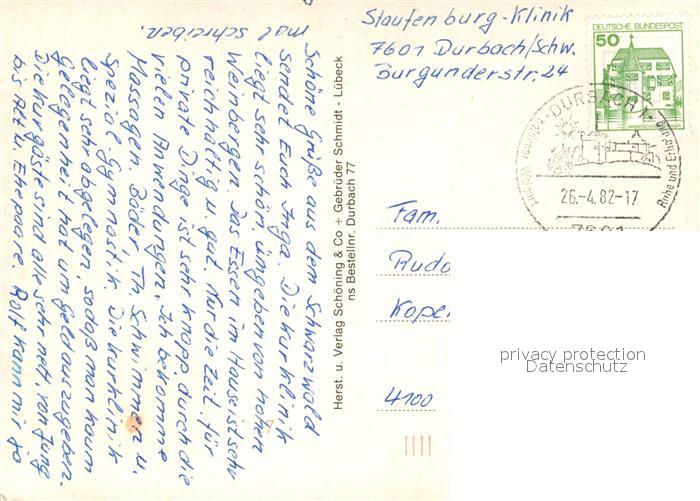 Staufenburg-Klinik
7601 Durbach/Schw.
Burgunderstr. 24
DEUTSCHE BUNDESPOST
50
DURBACH 1
Ruhe und Erholung
26.-4.82-17
7601
Schöne Grüße aus dem Schwarzwald
sendet Euch Inga. Die Kurklinik
liegt sehr schön, umgeben von hohen
Weinbergen. Das Essen im Hause ist sehr
reichhaltig u. gut. Nur die Zeit für
private Dinge ist sehr knapp, durch die
vielen Anwendungen. Ich bekomme
Massagen. Bäder, Th. Schwimmen u.
Spezial-Gymnastik. Die Kurklinik
liegt sehr abgelegen, sodaß man kaum
Gelegenheit hat um Geld auszugeben.
Die Kurgäste sind alle sehr nett, von Jung
bis Alt u. Ehepaare. Rolf kann mir ja
mal schreiben.
Herst. u. Verlag Schöning & Co + Gebrüder Schmidt - Lübeck
ns Bestellnr. Durbach 77
Fam.
Rudo
Kope
4100
privacy protection
Datenschutz